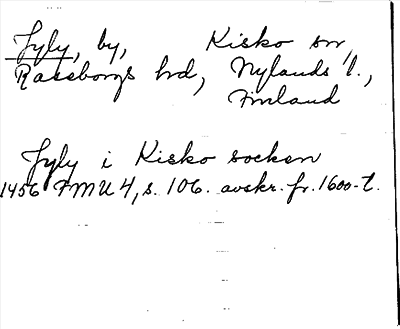 Jyly, by, Kisko sn,
Raseborgs hd, Nylands l.,
Finland
Jyly i Kisko socken
1456 FMU 4, s. 106. avskr. fr. 1600-t.